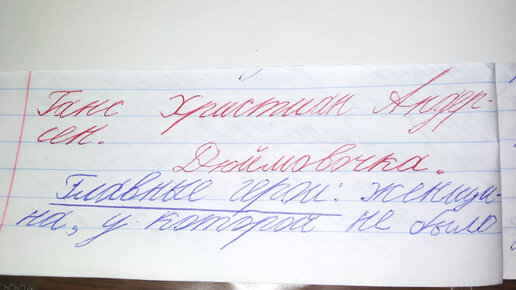 Ганс Христиан Андер-
сен.
Дюймовочка.
Главные герои: женщи-
на, у которой не было